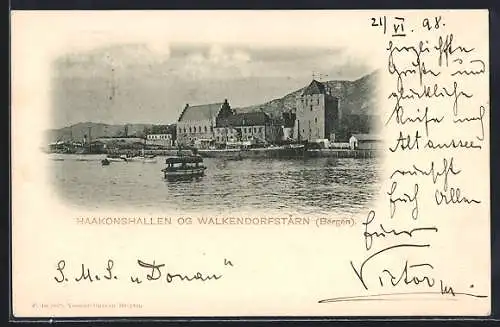 21/VI. 98.
herzlichste
Grüße und
glückliche
Reise nach
Alt aussee
wünscht
Euch Allen
HAAKONSHALLEN OG WALKENDORFSTÅRN (Bergen).
Euer
S. M. S. „Donau"
Victor